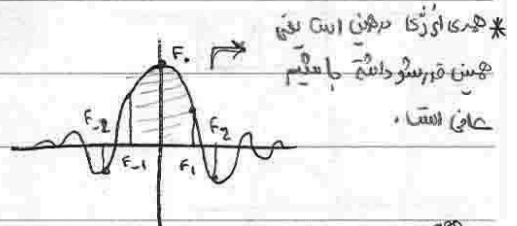 * همهٔ انرژی درهمین است یعنی
همین قدرشو داشته باشیم
کافی است.
F₀
F₋₂
F₂
F₋₁
F₁